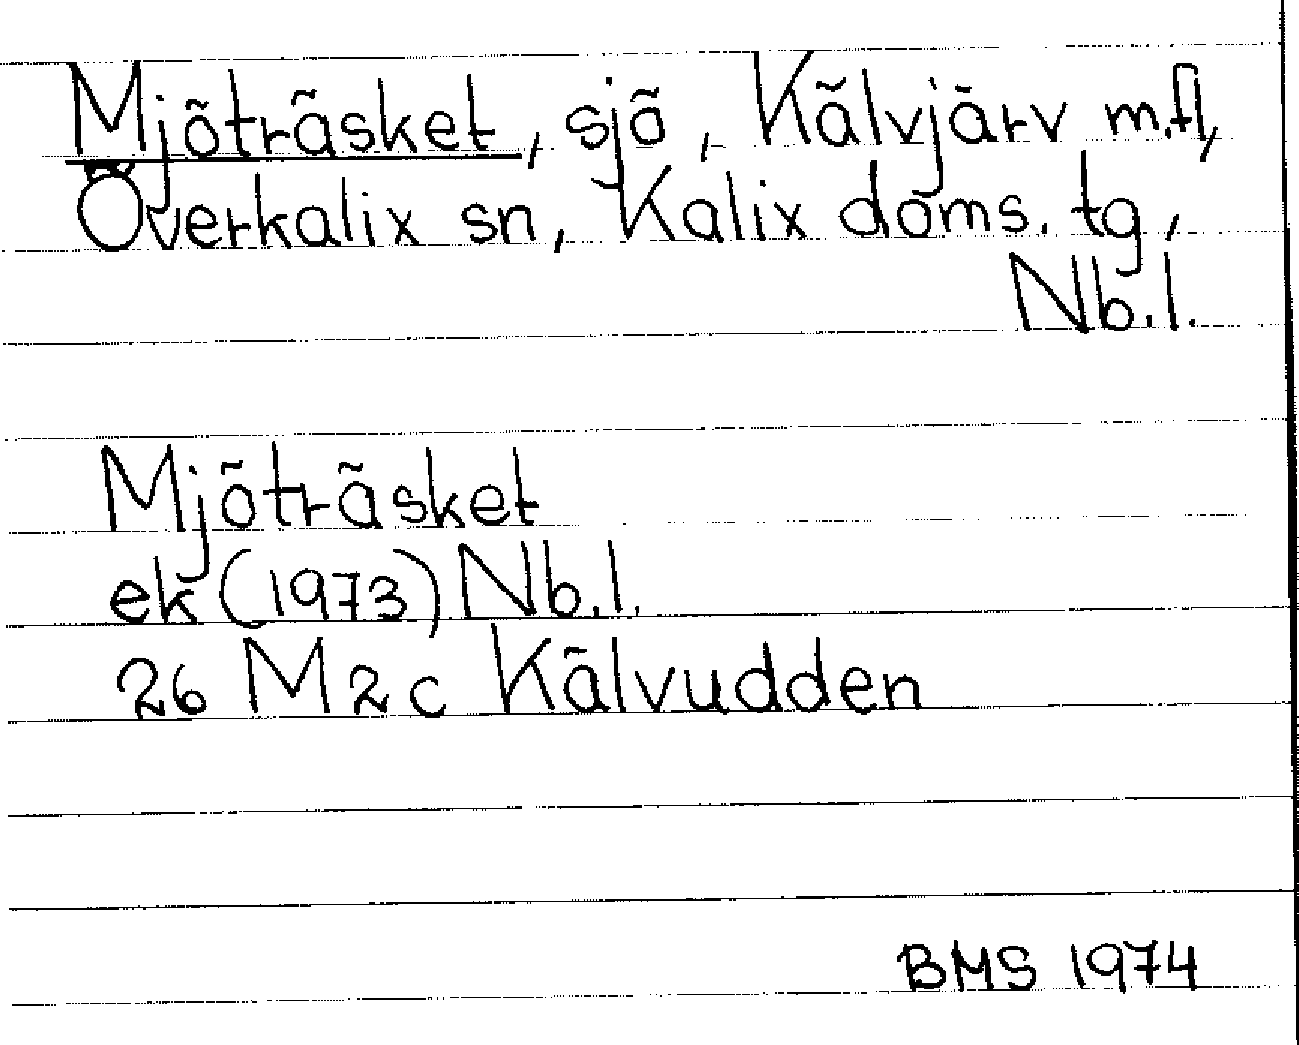 Mjöträsket, sjö, Kälvjärv m.fl,
Överkalix sn, Kalix doms. tg,
Nb.l.
Mjöträsket
ek (1973) Nb.l.
26 M 2 c Kälvudden
BMS 1974